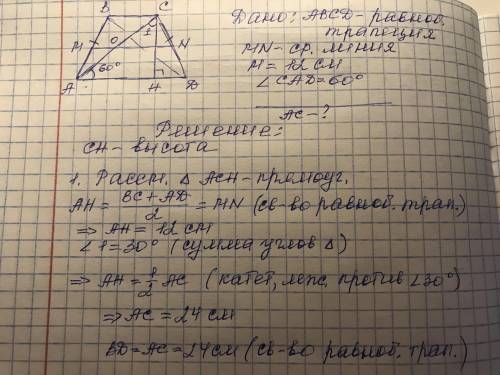 B C
Дано: ABCD - равноб.
трапеция
M O 1 N
MN - ср. линия
M = 12 см
60°
∠CAD = 60°
A H D
AC - ?
Решение:
CH - высота
1. Рассм. △ ACH - прямоуг.
AH = BC + AD / 2 = MN (св-во равноб. трап.)
⇒ AH = 12 см
∠1 = 30° (сумма углов △)
⇒ AH = 1/2 AC (катет, леж. против ∠30°)
⇒ AC = 24 см
BD = AC = 24 см (св-во равноб. трап.)